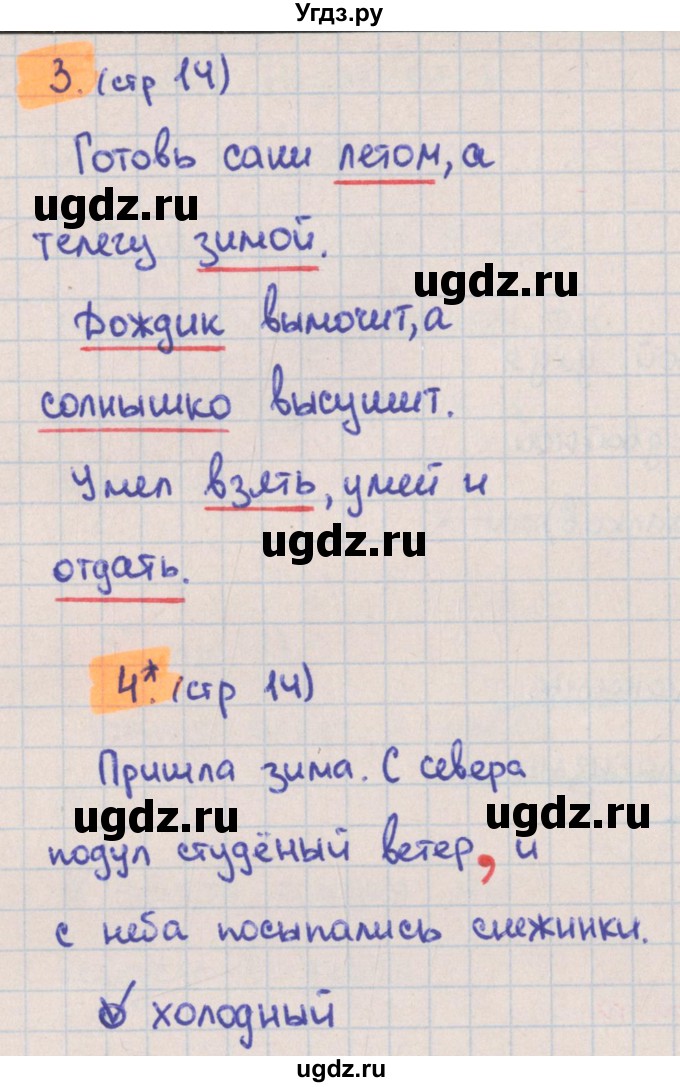 Угдз.ру
3. (стр 14)
Готовь сани летом, а
телегу зимой.
Дождик вымочит, а
солнышко высушит.
Умел взять, умей и
отдать.
4*. (стр 14)
Пришла зима. С севера
подул студёный ветер, и
с неба посыпались снежинки.
холодный
ugdz.ru
ugdz.ru
ugdz.ru
ugdz.ru
ugdz.ru
ugdz.ru